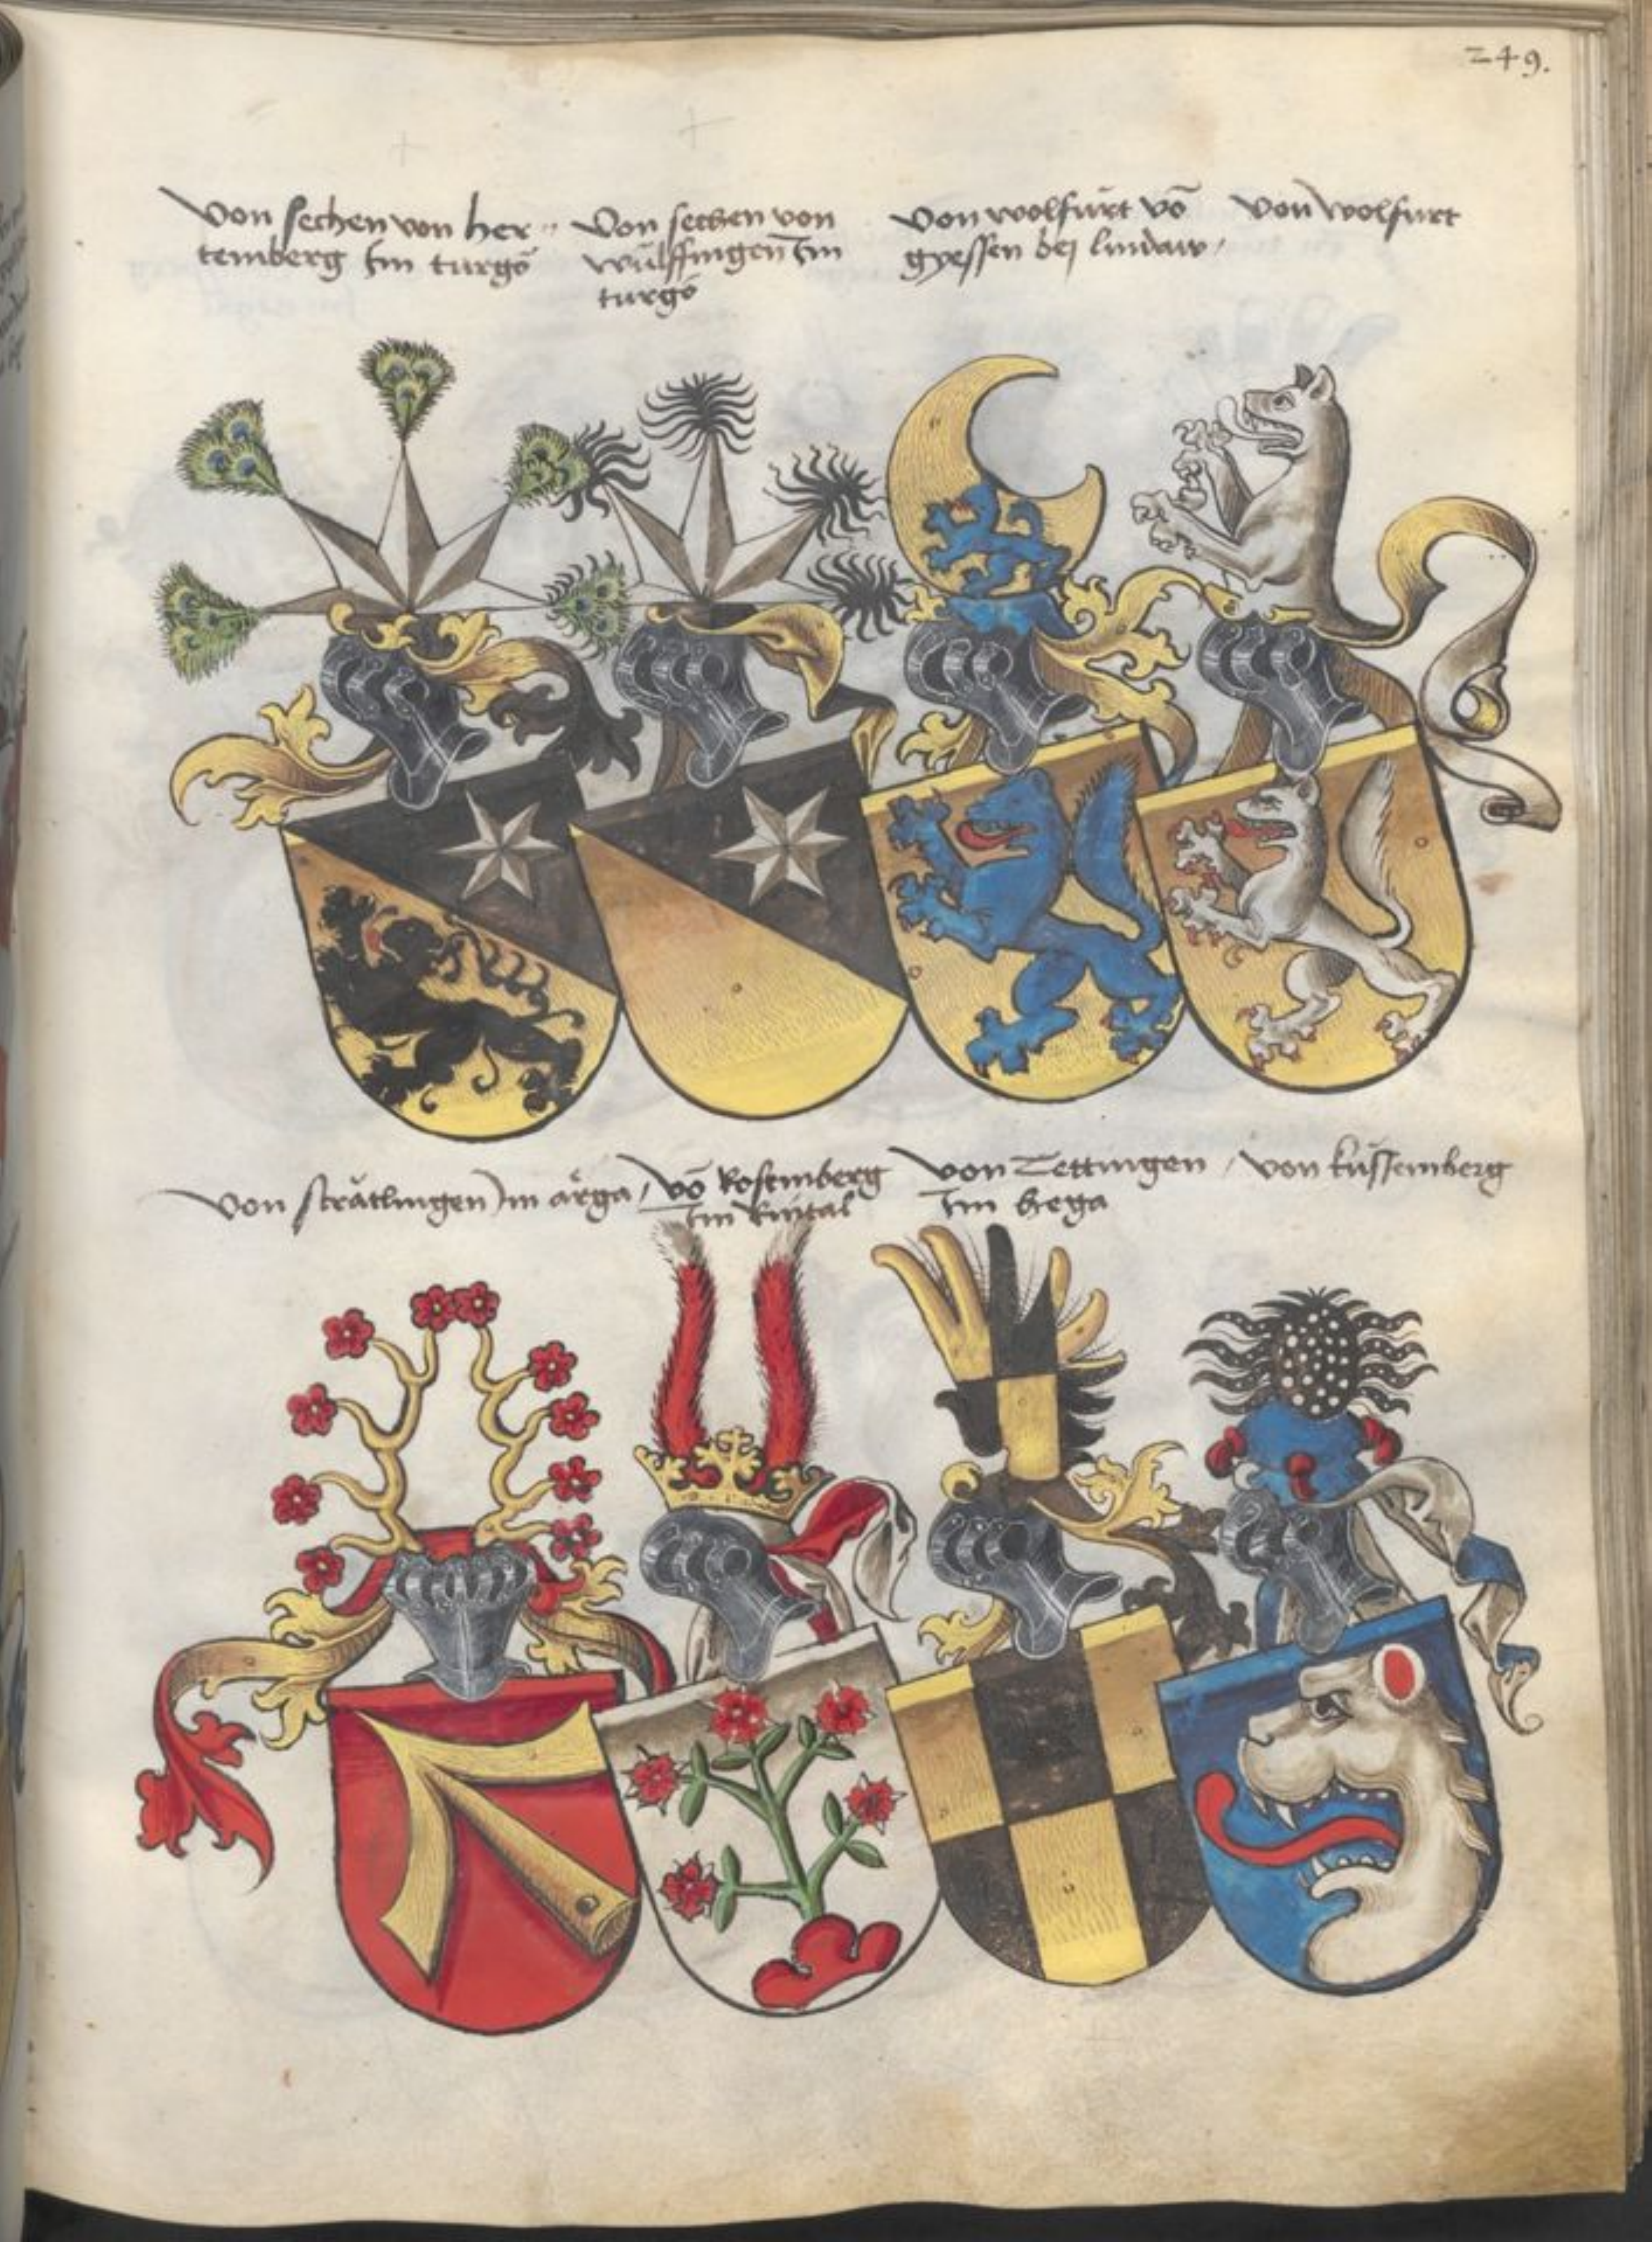 249.
Von sechen von her-
temberg Im turgö
Von sechen von
wülffingen Im
turgö
Von wolfurt vō
gyessen bej lindaw,
Von wolfurt
Von strätlingen Im ärga,
Vō Rosemberg
Im Rintal
Von Tettingen,
Im hega
Von küssemberg